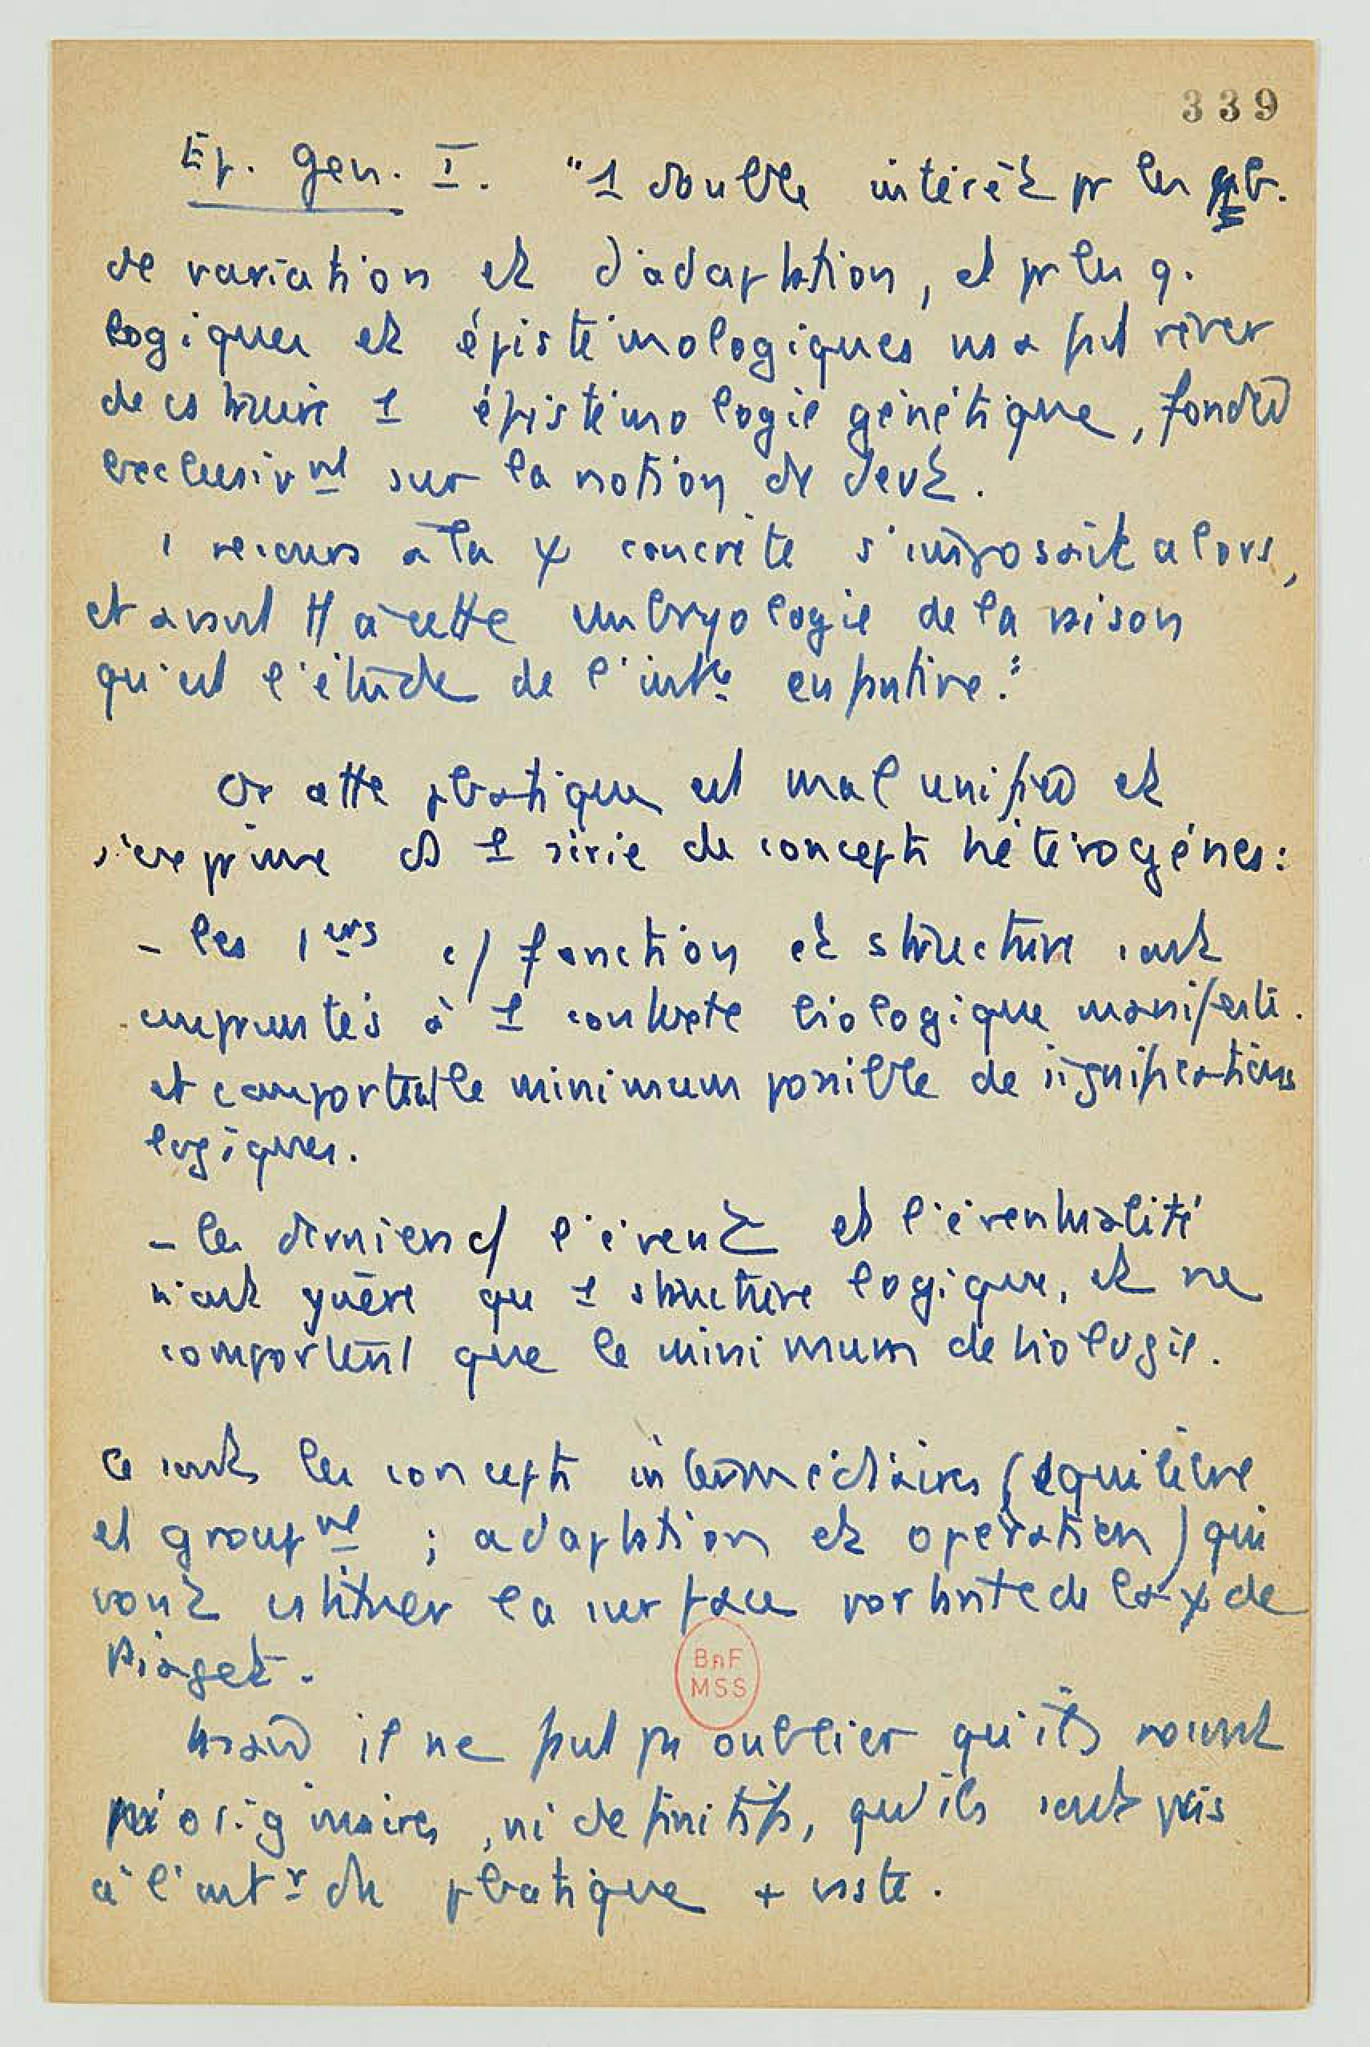 339
Ep. Gen. I. "1 double intérêt pr les pb.
de variation et d'adaptation, et pr les q.
logiques et épistémologiques ns a fait rêver
de cstruire 1 épistémologie génétique, fondée
exclusivmt sur la notion de devt.
1 recours à la ψ concrète s'imposait alors,
et avant tt à cette embryologie de la raison
qu'est l'étude de l'intce enfantine."
Or cette pratique est mal unifiée et
s'exprime ds 1 série de concepts hétérogènes:
- les 1ers c/ fonction et structure sont
empruntés à 1 contexte biologique manifeste.
et comportent le minimum possible de significations
logiques.
- les derniers c/ l'évent et l'éventualité
n'ont guère que 1 structure logique, et ne
comportent que le minimum de biologie.
Ce sont les concepts intermédiaires (équilibre
et groupmt ; adaptation et opération) qui
vont cstituer la surface portante de la ψ de
Piaget.
BnF
MSS
Mais il ne faut pas oublier qu'ils ne sont
ni originaires, ni définitifs, qu'ils sont pris
à l'intr du pratique + vaste.